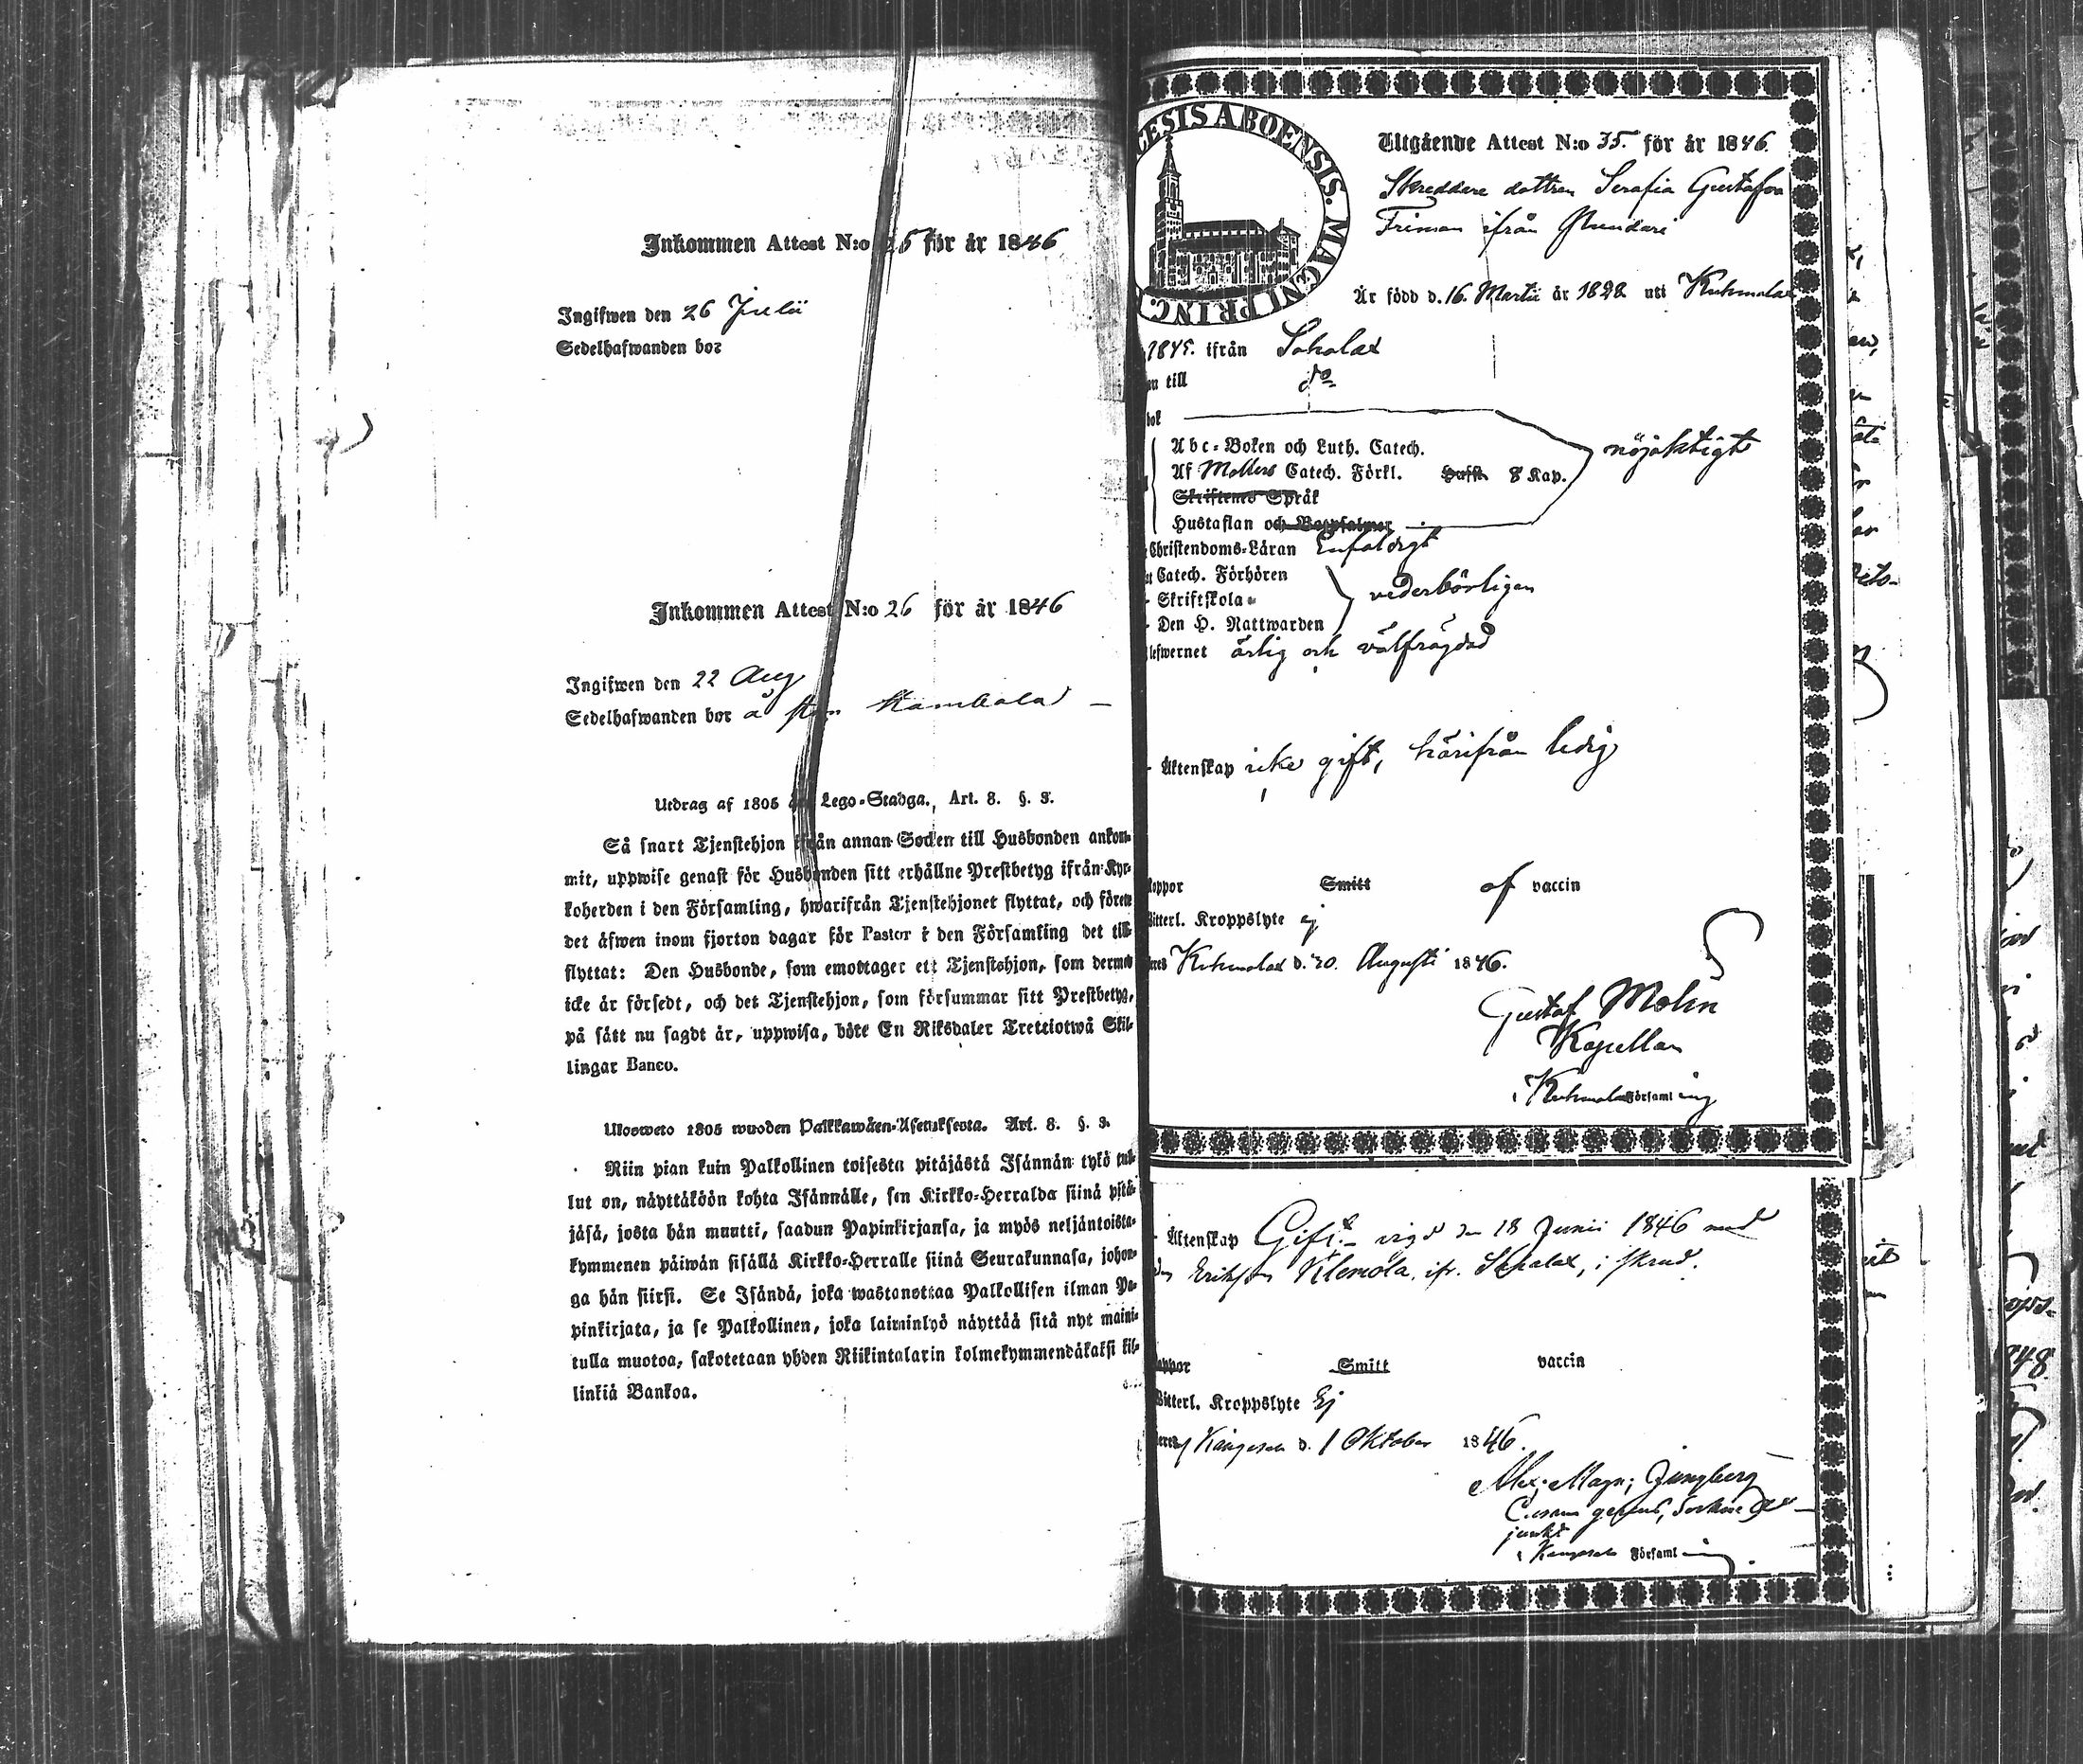 Inkommen Attest N:o 25 för år 1846
Ingifwen den 26 Julii
Sedelhafwanden bor
Inkommen Attest N:o 26 för år 1846
Ingifwen den 22 Aug
Sedelhafwanden bor å
Utdrag af 1805 års Lego-Stadga. Art. 8. §. 3.
Så snart Tjenstehjon ifrån annan Socken till Husbonden ankom-
mit, uppwise genast för Husbonden sitt erhållne Prestbetyg ifrån Kyr-
koherden i den Församling, hwarifrån Tjenstehjonet flyttat, och förete
det äfwen inom fjorton dagar för Pastor i den Församling det till-
flyttat: Den Husbonde, som emottager ett Tjenstehjon, som dermed
icke är försedt, och det Tjenstehjon, som försummar sitt Prestbetyg,
på sått nu sagdt är, uppwisa, böte En Riksdaler Trettiotwå Skil-
lingar Banco.
Uloswето 1805 wuoden Palkkawäen-Asetuksesta. Art. 8. §. 3.
Niin pian kuin Palkollinen toisesta pitäjästä Isännän tykö tul-
lut on, näyttäköön kohta Isännälle, sen Kirkko-Herralda siinä pitä-
jäsä, josta hän muutti, saadun Papinkirjansa, ja myös neljäntoista-
kymmenen päiwän sisällä Kirkko-Herralle siinä Seurakunnasa, johon-
ga hän siirsi. Se Isändä, joka wastanottaa Palkollisen ilman Pa-
pinkirjata, ja se Palkollinen, joka laiminlyö näyttää sitä nyt maini-
tulla muotoa, sakotetaan yhden Riikintalarin kolmekymmendäkaksi kil-
linkiä Bankoa.
CESIS ABOENSIS. MAGNI PRINC.
Utgående Attest N:o 35. för år 1846.
Skreddare dottren Serafia Gustafva
Friman ifrån
Är född d. 16. Martii år 1828 uti Kuhmalax
1845. ifrån Sahalax
till do
bok
Abc-Boken och Luth. Catech.
Af Mollers Catech. Förkl. Hufst. 8 Kap. nöjaktigt
Skriftenes Språk
Hustaflan och Botpsalmer
Christendoms-Läran Enfaldigt
Catech. Förhören
Skriftskola
Den H. Nattwarden vederbörligen
lefwernet ärlig och välfrägdad
Äktenskap icke gift, härifrån ledig
koppor Smitt af vaccin
Witterl. Kroppslyte ej
Kuhmalax d. 20. Augusti 1846.
Gustaf Molin
Kapellan
i Kuhmalax Församling
Äktenskap Gift. vigd den 18 Junii 1846 med
Erikson Klemola, ifr. Sahalax,
koppor Smitt vaccin
Witterl. Kroppslyte Ej
Kangasala d. 1 Oktober 1846.
Alex: Magn; Ljungberg
junkt
i Kangasala Församling